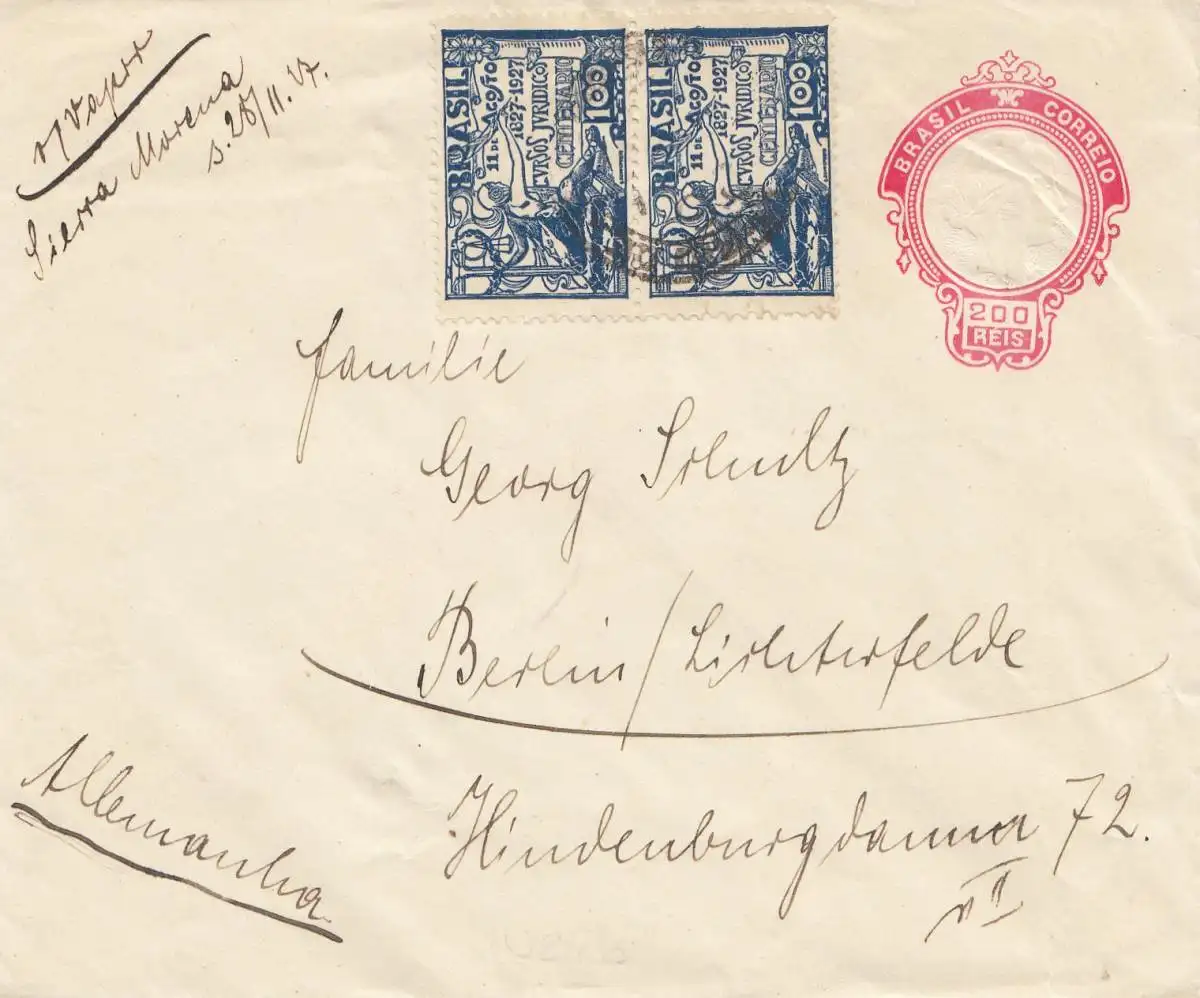 p/ Vapor
Sierra Morena
s. 28/11.27.
BRASIL
11 DE AGOSTO
1827-1927
CVRSOS JVRIDICOS
CENTENARIO
100
BRASIL
11 DE AGOSTO
1827-1927
CVRSOS JVRIDICOS
CENTENARIO
100
BRASIL CORREIO
200
REIS
Familie
Georg Schultz
Berlin/Lichterfelde
Hindenburgdamm 72.
II
Allemanha